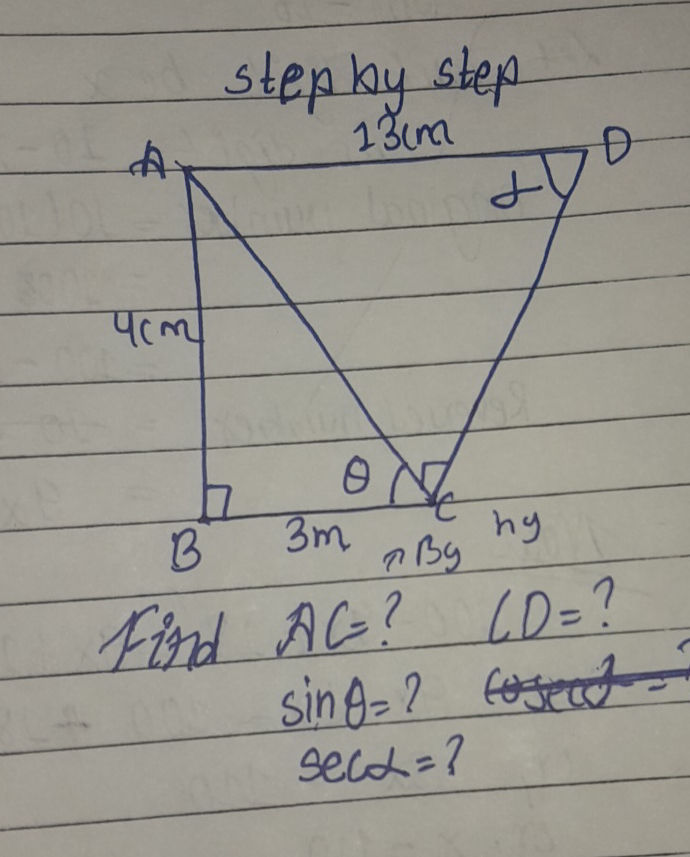 step by step
13cm
A D
α
4cm
θ
B 3m C
By hy
Find AC=? CD=?
sinθ=? cosecα=?
secα=?